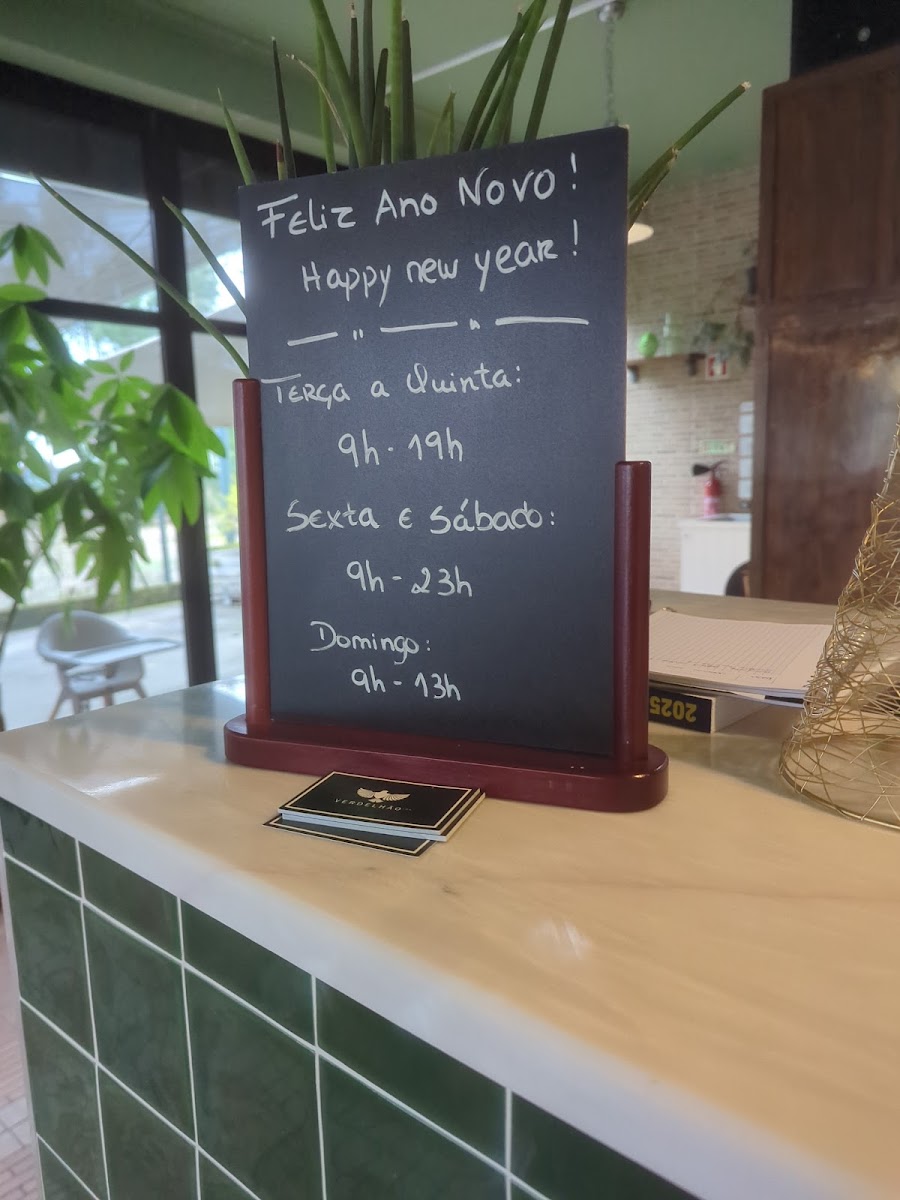 FELiz Ano Novo!
Happy new year!
TERÇA a Quinta:
9h - 19h
SExta E Sábado:
9h - 23h
Domingo:
9h - 13h
2025
VERDELHÃO